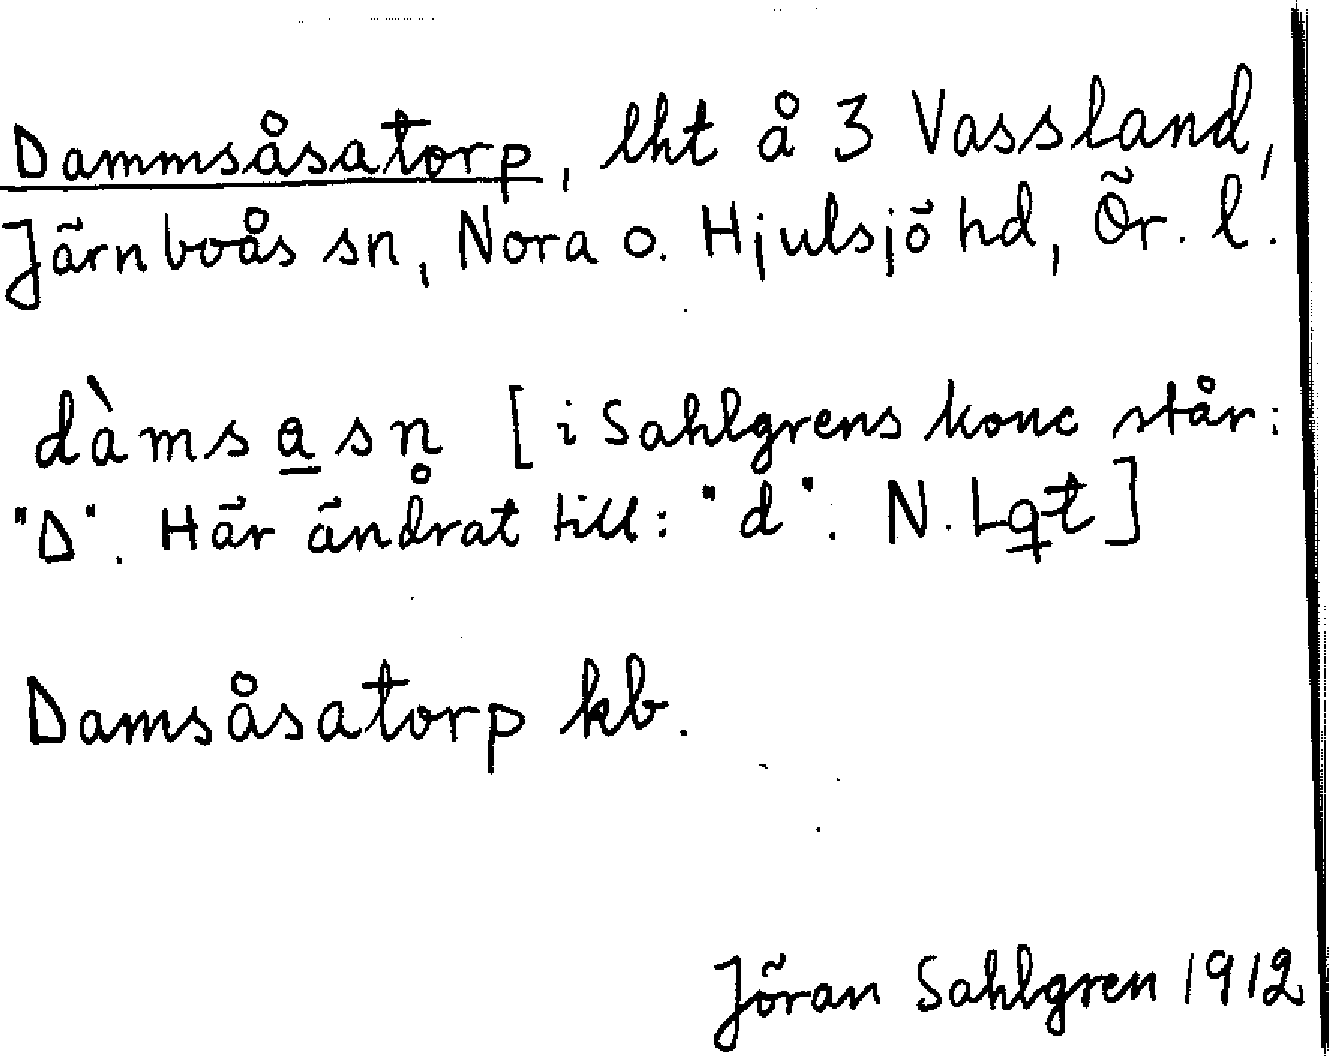 Dammsåsatorp, lht å 3 Vassland,
Järnboås sn, Nora o. Hjulsjö hd, Ör. l.
dàmsasn [i Sahlgrens konc står:
"D". Här ändrat till: "d". N. Lqt]
Damsåsatorp kb.
Jöran Sahlgren 1912